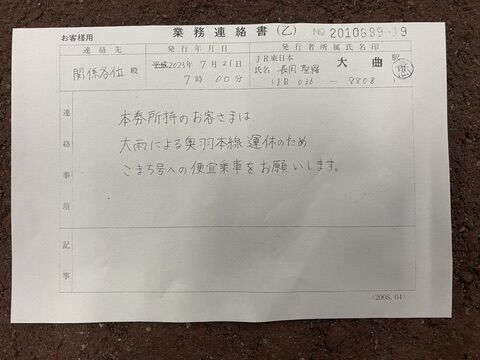 お客様用
業務連絡書(乙)
NO 2010699-19
連絡先
発行年月日
発行者所属氏名印
関係各位 殿
平成2023年7月21日
7時00分
JR東日本 大曲 駅
氏名 長岡聖羅
(JR 036-8808
連絡事項
本券所持のお客さまは、
大雨による奥羽本線運休のため
こまち号への便宜乗車をお願いします。
記事
(2008.04)